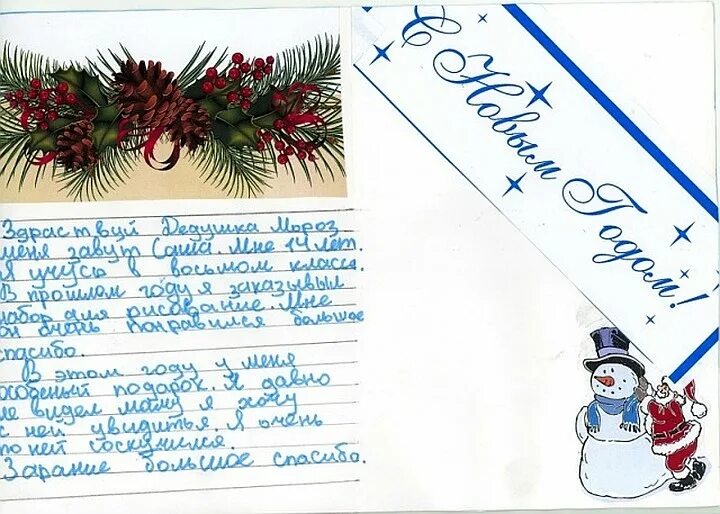 Здраствуй Дедушка Мороз
меня завут Саша. Мне 14 лет.
Я учусь в восьмом класса.
В прошлом году я заказывыл
набор для рисование. Мне
он очень понравился большое
спасибо.
В этом году у меня
особеный подарок. Я давно
не видел маму я хочу
с ней увидиться. Я очень
по ней соскучился.
Зарание большое спасибо.
С Новым Годом!